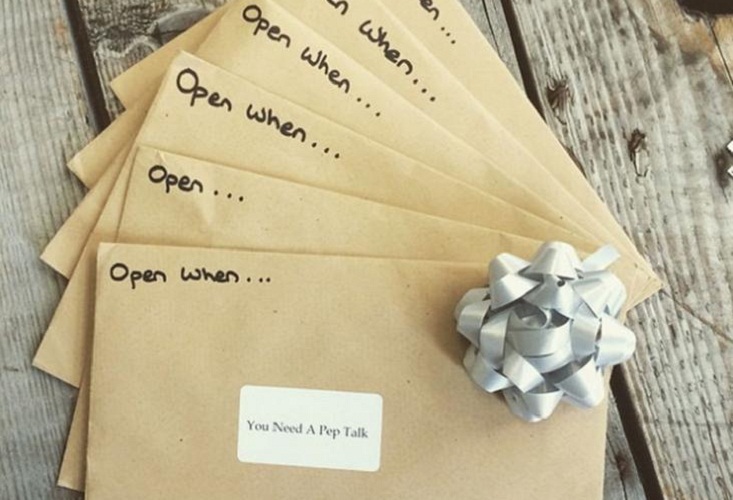 en...
en when...
Open when...
Open when...
Open ...
Open when...
You Need A Pep Talk